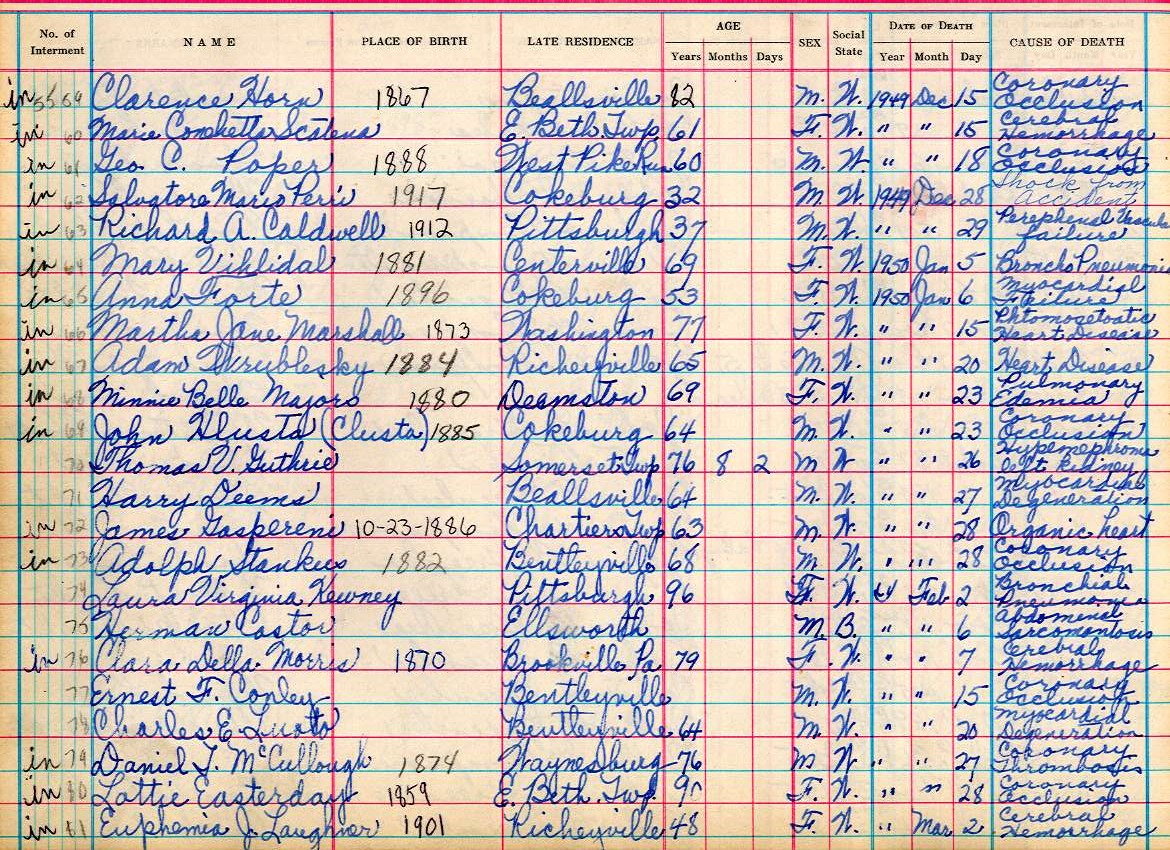 No. of Interment NAME PLACE OF BIRTH LATE RESIDENCE AGE Years Months Days SEX Social State DATE OF DEATH Year Month Day CAUSE OF DEATH
in 59 Clarence Horn 1867 Beallsville 82 M. W. 1949 Dec 15 Coronary Occlusion
in 60 Marie Scatena E. Beth. Twp 61 F. W. " " 15 Cerebral Hemorrhage
in 61 Geo C. Poper 1888 West Pike Run 60 M. W. " " 18 Coronary Occlusion
in 62 Salvatore Mario Perri 1917 Cokeburg 32 M. W. 1949 Dec 28 Shock from Accident
in 63 Richard A. Caldwell 1912 Pittsburgh 37 M. W. " " 29 Perephenal Vascular failure
in 64 Mary Vihlidal 1881 Centerville 69 F. W. 1950 Jan 5 Broncho Pneumonia
in 65 Anna Forte 1896 Cokeburg 53 F. W. 1950 Jan 6 Myocardial Failure
in 66 Martha Jane Marshall 1873 Washington 77 F. W. " " 15 Heart Disease
in 67 Adam 1884 Richeyville 65 M. W. " " 20 Heart Disease
in 68 Minnie Belle Majors 1880 Deamston 69 F. W. " " 23 Pulmonary Edemia
in 69 John Hlusta (Clusta) 1885 Cokeburg 64 M. W. " " 23 Coronary Occlusion
70 Thomas V. Guthrie Somerset Twp 76 8 2 M W " " 26 Hypernephroma left kidney
71 Harry Deems Beallsville 64 M. W. " " 27 Myocardial Degeneration
in 72 James Gaspereni 10-23-1886 Chartiers Twp 63 M. W. " " 28 Organic heart
in 73 Adolph Stankus 1882 Bentleyville 68 M. W. " " 28 Coronary Occlusion
74 Laura Virginia Kewney Pittsburgh 96 F. W. " Feb 2 Bronchial Pneumonia
75 Herman Castor Ellsworth M. B. " " 6 Abdominal Sarcomantosis
in 76 Clara Della Morris 1870 Brookville Pa 79 F. W. " " 7 Cerebral Hemorrhage
77 Ernest F. Conley Bentleyville M. W. " " 15 Coronary Occlusion
78 Charles E. Luoto Bentleyville 64 M. W. " " 20 Myocardial Degeneration
in 79 Daniel J. McCullough 1874 Waynesburg 76 M W " " 27 Coronary Thrombosis
in 80 Lottie Easterday 1859 E. Beth. Twp. 90 F. W. " " 28 Coronary Occlusion
in 81 Euphemia J. Laughner 1901 Richeyville 48 F. W. " Mar 2 Cerebral Hemorrhage